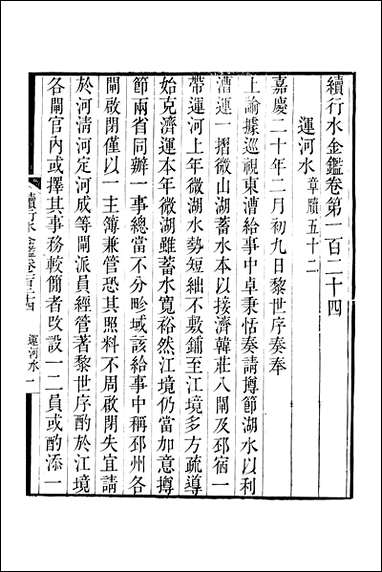 續行水金鑑卷第一百二十四
運河水 章牘五十二
嘉慶二十年二月初九日黎世序奏奉
上諭據巡視東漕給事中卓秉恬奏請撙節湖水以利
漕運一摺微山湖蓄水本以接濟韓莊八閘及邳宿一
帶運河上年微湖水勢短絀不敷鋪至江境多方疏導
始克濟運本年微湖雖蓄水寬裕然江境仍當加意撙
節兩省同辦一事總當不分畛域該給事中稱邳州各
閘啟閉僅以一主簿兼管恐其照料不周啟閉失宜請
於河清河定河成等閘派員經管著黎世序酌於江境
各閘官內或擇其事務較簡者改設一二員或酌添一
續行水金鑑卷一百二十四 運河水 一